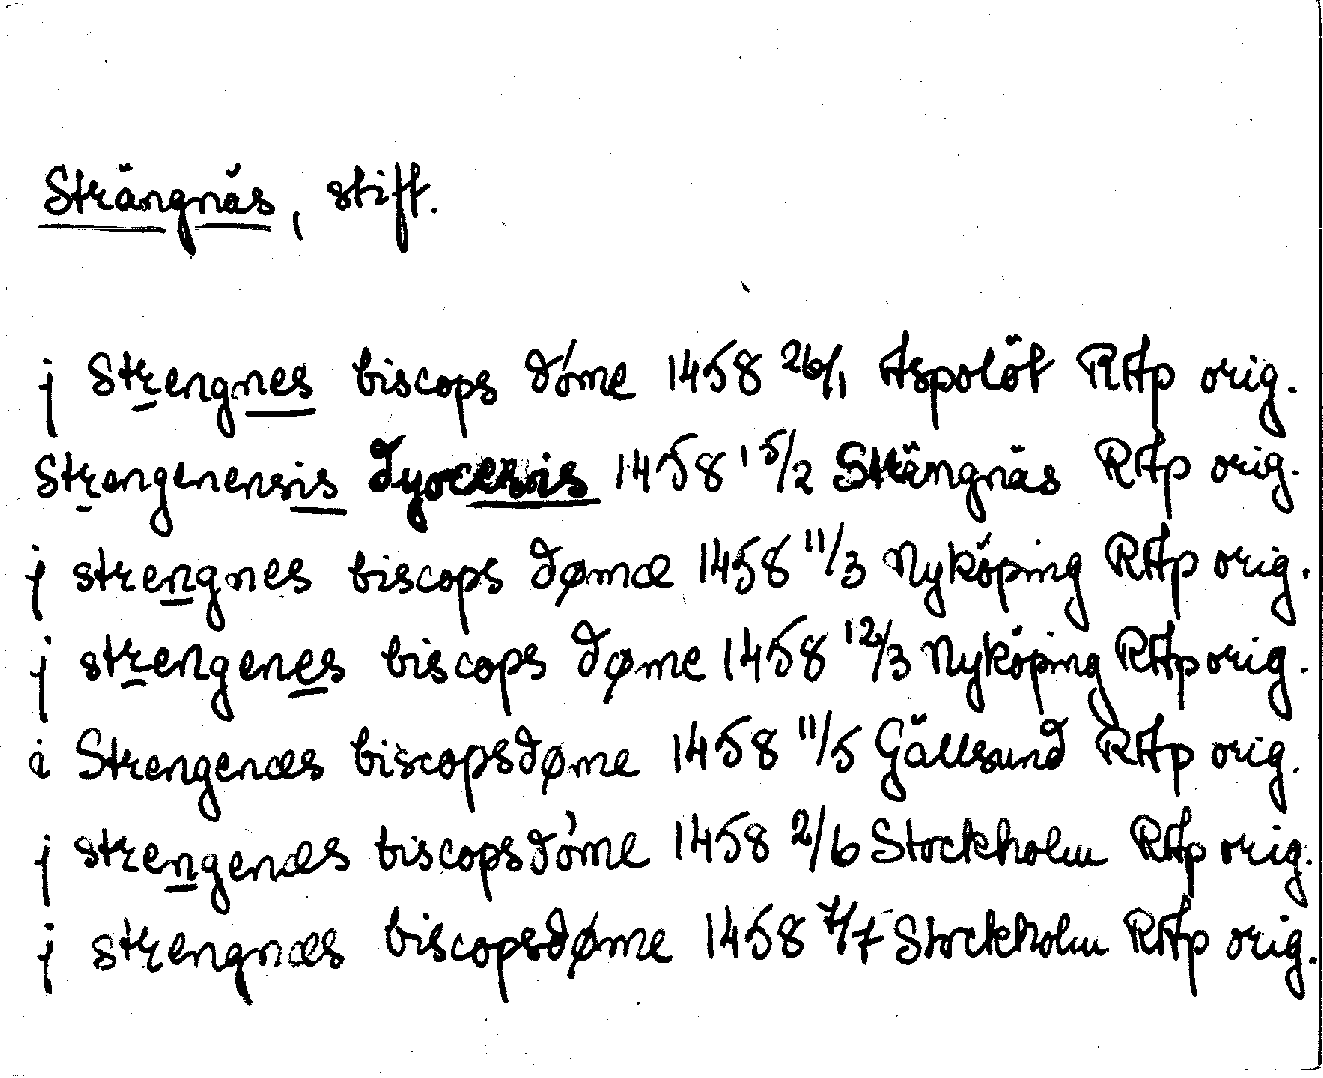 Strängnäs, stift.
j Strengnes biscops dóme 1458 26/1 Aspolöt RAp orig.
Strengenensis dyocesis 1458 15/2 Strängnäs RAp orig.
j strengnes biscops dømæ 1458 11/3 Nyköping RAp orig.
j strengenes biscops døme 1458 12/3 Nyköping RAp orig.
i Strengenæs biscopsdøme 1458 11/5 Gällsund RAp orig.
j strengenæs biscopsdóme 1458 2/6 Stockholm RAp orig.
j strengnæs biscopsdøme 1458 7/7 Stockholm RAp orig.